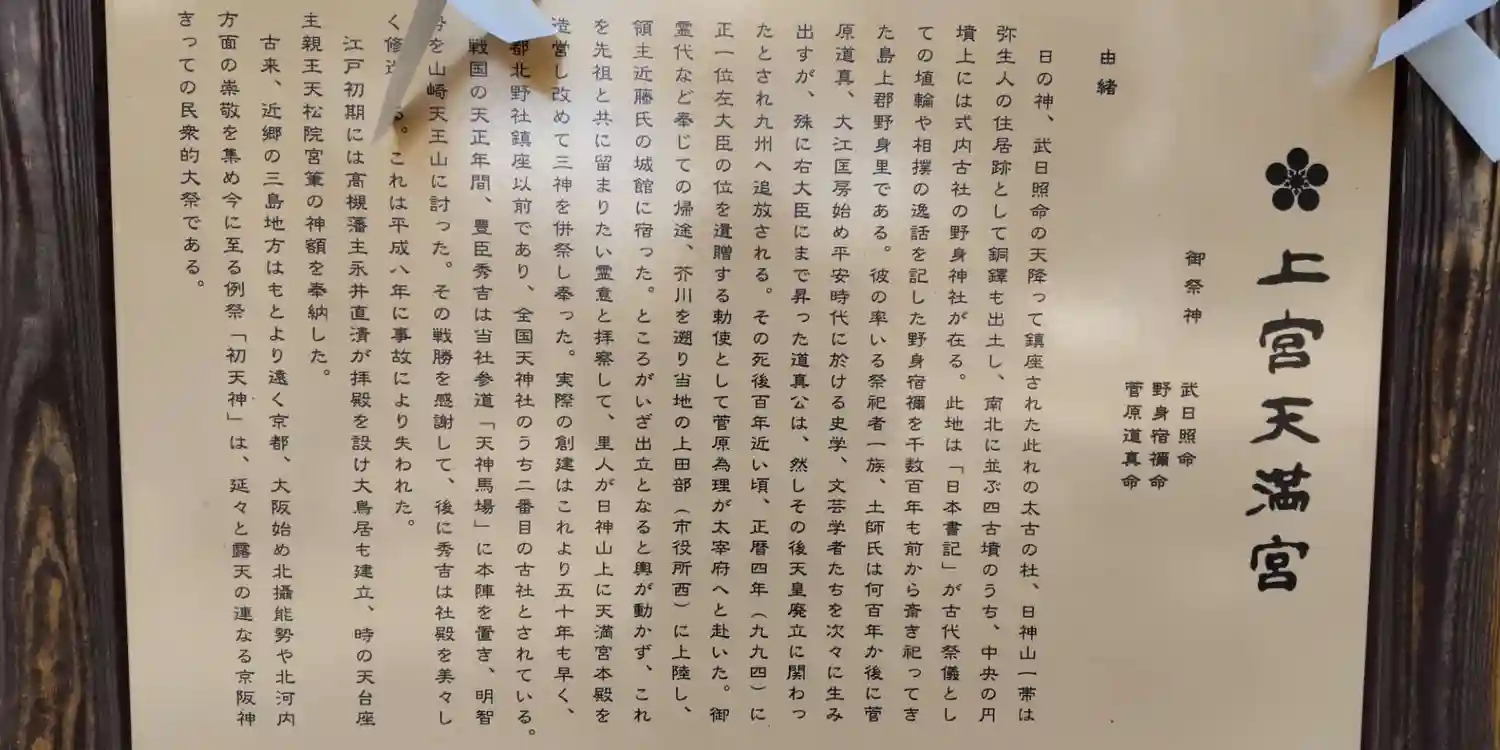 上宮天満宮
御祭神
武日照命
野身宿禰命
菅原道真命
由緒
日の神、武日照命の天降って鎮座された此れの太古の杜、日神山一帯は
弥生人の住居跡として銅鐸も出土し、南北に並ぶ四古墳のうち、中央の円
墳上には式内古社の野身神社が在る。此地は「日本書記」が古代祭儀とし
ての埴輪や相撲の逸話を記した野身宿禰を千数百年も前から斎き祀ってき
た島上郡野身里である。彼の率いる祭祀者一族、土師氏は何百年か後に菅
原道真、大江匡房始め平安時代に於ける史学、文芸学者たちを次々に生み
出すが、殊に右大臣にまで昇った道真公は、然しその後天皇廃立に関わっ
たとされ九州へ追放される。その死後百年近い頃、正暦四年（九九四）に
正一位左大臣の位を遺贈する勅使として菅原為理が太宰府へと赴いた。御
霊代など奉じての帰途、芥川を遡り当地の上田部（市役所西）に上陸し、
領主近藤氏の城館に宿った。ところがいざ出立となると輿が動かず、これ
を先祖と共に留まりたい霊意と拝察して、里人が日神山上に天満宮本殿を
造営し改めて三神を併祭し奉った。実際の創建はこれより五十年も早く、
都北野社鎮座以前であり、全国天神社のうち二番目の古社とされている。
戦国の天正年間、豊臣秀吉は当社参道「天神馬場」に本陣を置き、明智
を山崎天王山に討った。その戦勝を感謝して、後に秀吉は社殿を美々し
く修る。これは平成八年に事故により失われた。
江戸初期には高槻藩主永井直清が拝殿を設け大鳥居も建立、時の天台座
主親王天松院宮筆の神額を奉納した。
古来、近郷の三島地方はもとより遠く京都、大阪始め北攝能勢や北河内
方面の崇敬を集め今に至る例祭「初天神」は、延々と露天の連なる京阪神
きっての民衆的大祭である。